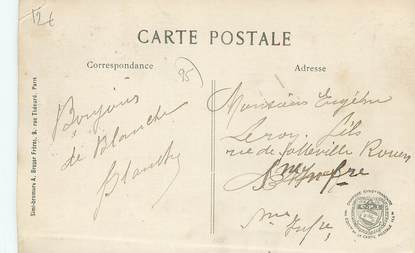 12€
CARTE POSTALE
Correspondance
Adresse
95
Bonjour
de Blanche
Blanche
Monsieur Eugène
Leroy, fils
rue de Sotteville Rouen
Sme Infre
Sme
Infre
Simi-bromure A. Breger Frères, 9, rue Thénard, Paris